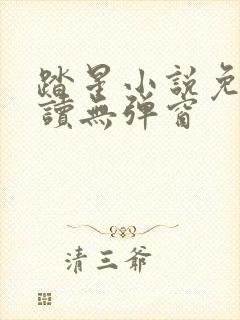 踏星小說免
讀無彈窗
清三爺